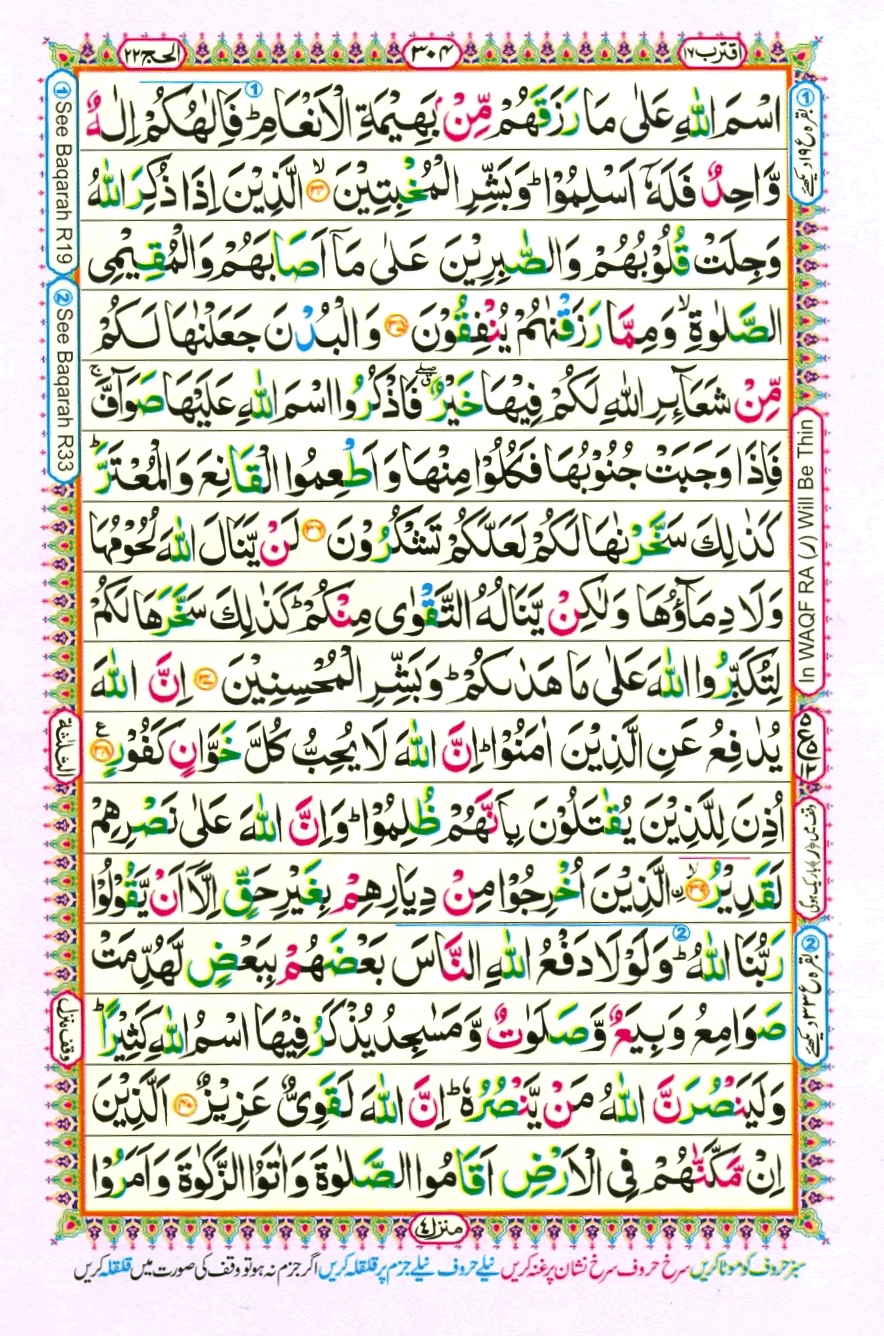 اقترب ١٧
٣٠٤
الحج ٢٢
اسْمَ اللّٰهِ عَلٰى مَا رَزَقَهُمْ مِّنْۢ بَهِيْمَةِ الْاَنْعَامِ ؕ ① فَاِلٰهُكُمْ اِلٰهٌ
وَّاحِدٌ فَلَهٗۤ اَسْلِمُوْا ؕ وَبَشِّرِ الْمُخْبِتِيْنَ ۙ‏﴿۳۴﴾ الَّذِيْنَ اِذَا ذُكِرَ اللّٰهُ
وَجِلَتْ قُلُوْبُهُمْ وَالصّٰبِرِيْنَ عَلٰى مَاۤ اَصَابَهُمْ وَالْمُقِيْمِى
الصَّلٰوةِ ۙ وَمِمَّا رَزَقْنٰهُمْ يُنْفِقُوْنَ ﴿۳۵﴾ وَالْبُدْنَ جَعَلْنٰهَا لَكُمْ
مِّنْ شَعَآئِرِ اللّٰهِ لَكُمْ فِيْهَا خَيْرٌ ۖۗ فَاذْكُرُوا اسْمَ اللّٰهِ عَلَيْهَا صَوَآفَّ ۚ
فَاِذَا وَجَبَتْ جُنُوْبُهَا فَكُلُوْا مِنْهَا وَاَطْعِمُوا الْقَانِعَ وَالْمُعْتَرَّ ؕ
كَذٰلِكَ سَخَّرْنٰهَا لَكُمْ لَعَلَّكُمْ تَشْكُرُوْنَ ﴿۳۶﴾ لَنْ يَّنَالَ اللّٰهَ لُحُوْمُهَا
وَلَا دِمَآؤُهَا وَلٰكِنْ يَّنَالُهُ التَّقْوٰى مِنْكُمْ ؕ كَذٰلِكَ سَخَّرَهَا لَكُمْ
لِتُكَبِّرُوا اللّٰهَ عَلٰى مَا هَدٰٮكُمْ ؕ وَبَشِّرِ الْمُحْسِنِيْنَ ﴿۳۷﴾ اِنَّ اللّٰهَ
يُدٰفِعُ عَنِ الَّذِيْنَ اٰمَنُوْا ؕ اِنَّ اللّٰهَ لَا يُحِبُّ كُلَّ خَوَّانٍ كَفُوْرٍ ﴿۳۸﴾ ع
اُذِنَ لِلَّذِيْنَ يُقٰتَلُوْنَ بِاَنَّهُمْ ظُلِمُوْا ؕ وَاِنَّ اللّٰهَ عَلٰى نَصْرِهِمْ
لَقَدِيْرُ ۙ‏﴿۳۹﴾ ۨالَّذِيْنَ اُخْرِجُوْا مِنْ دِيَارِهِمْ بِغَيْرِ حَقٍّ اِلَّاۤ اَنْ يَّقُوْلُوْا
رَبُّنَا اللّٰهُ ؕ ② وَلَوْلَا دَفْعُ اللّٰهِ النَّاسَ بَعْضَهُمْ بِبَعْضٍ لَّهُدِّمَتْ
صَوَامِعُ وَبِيَعٌ وَّصَلَوٰتٌ وَّمَسٰجِدُ يُذْكَرُ فِيْهَا اسْمُ اللّٰهِ كَثِيْرًا ؕ
وَلَيَنْصُرَنَّ اللّٰهُ مَنْ يَّنْصُرُهٗ ؕ اِنَّ اللّٰهَ لَقَوِىٌّ عَزِيْزٌ ﴿۴۰﴾ اَلَّذِيْنَ
اِنْ مَّكَّنّٰهُمْ فِى الْاَرْضِ اَقَامُوا الصَّلٰوةَ وَاٰتَوُا الزَّكٰوةَ وَاَمَرُوْا
منزل ٤
سبز حروف کو موٹا کریں سرخ حروف سرخ نشان پر غنہ کریں نیلے حروف نیلے جزم پر قلقلہ کریں اگر جزم نہ ہو تو وقف کی صورت میں قلقلہ کریں
① بقرہ ع ١٩ دیکھئے
In WAQF RA (ر) Will Be Thin
② بقرہ ع ٣٣ دیکھئے
① See Baqarah R19
② See Baqarah R33
الثلثة
وقف منزل